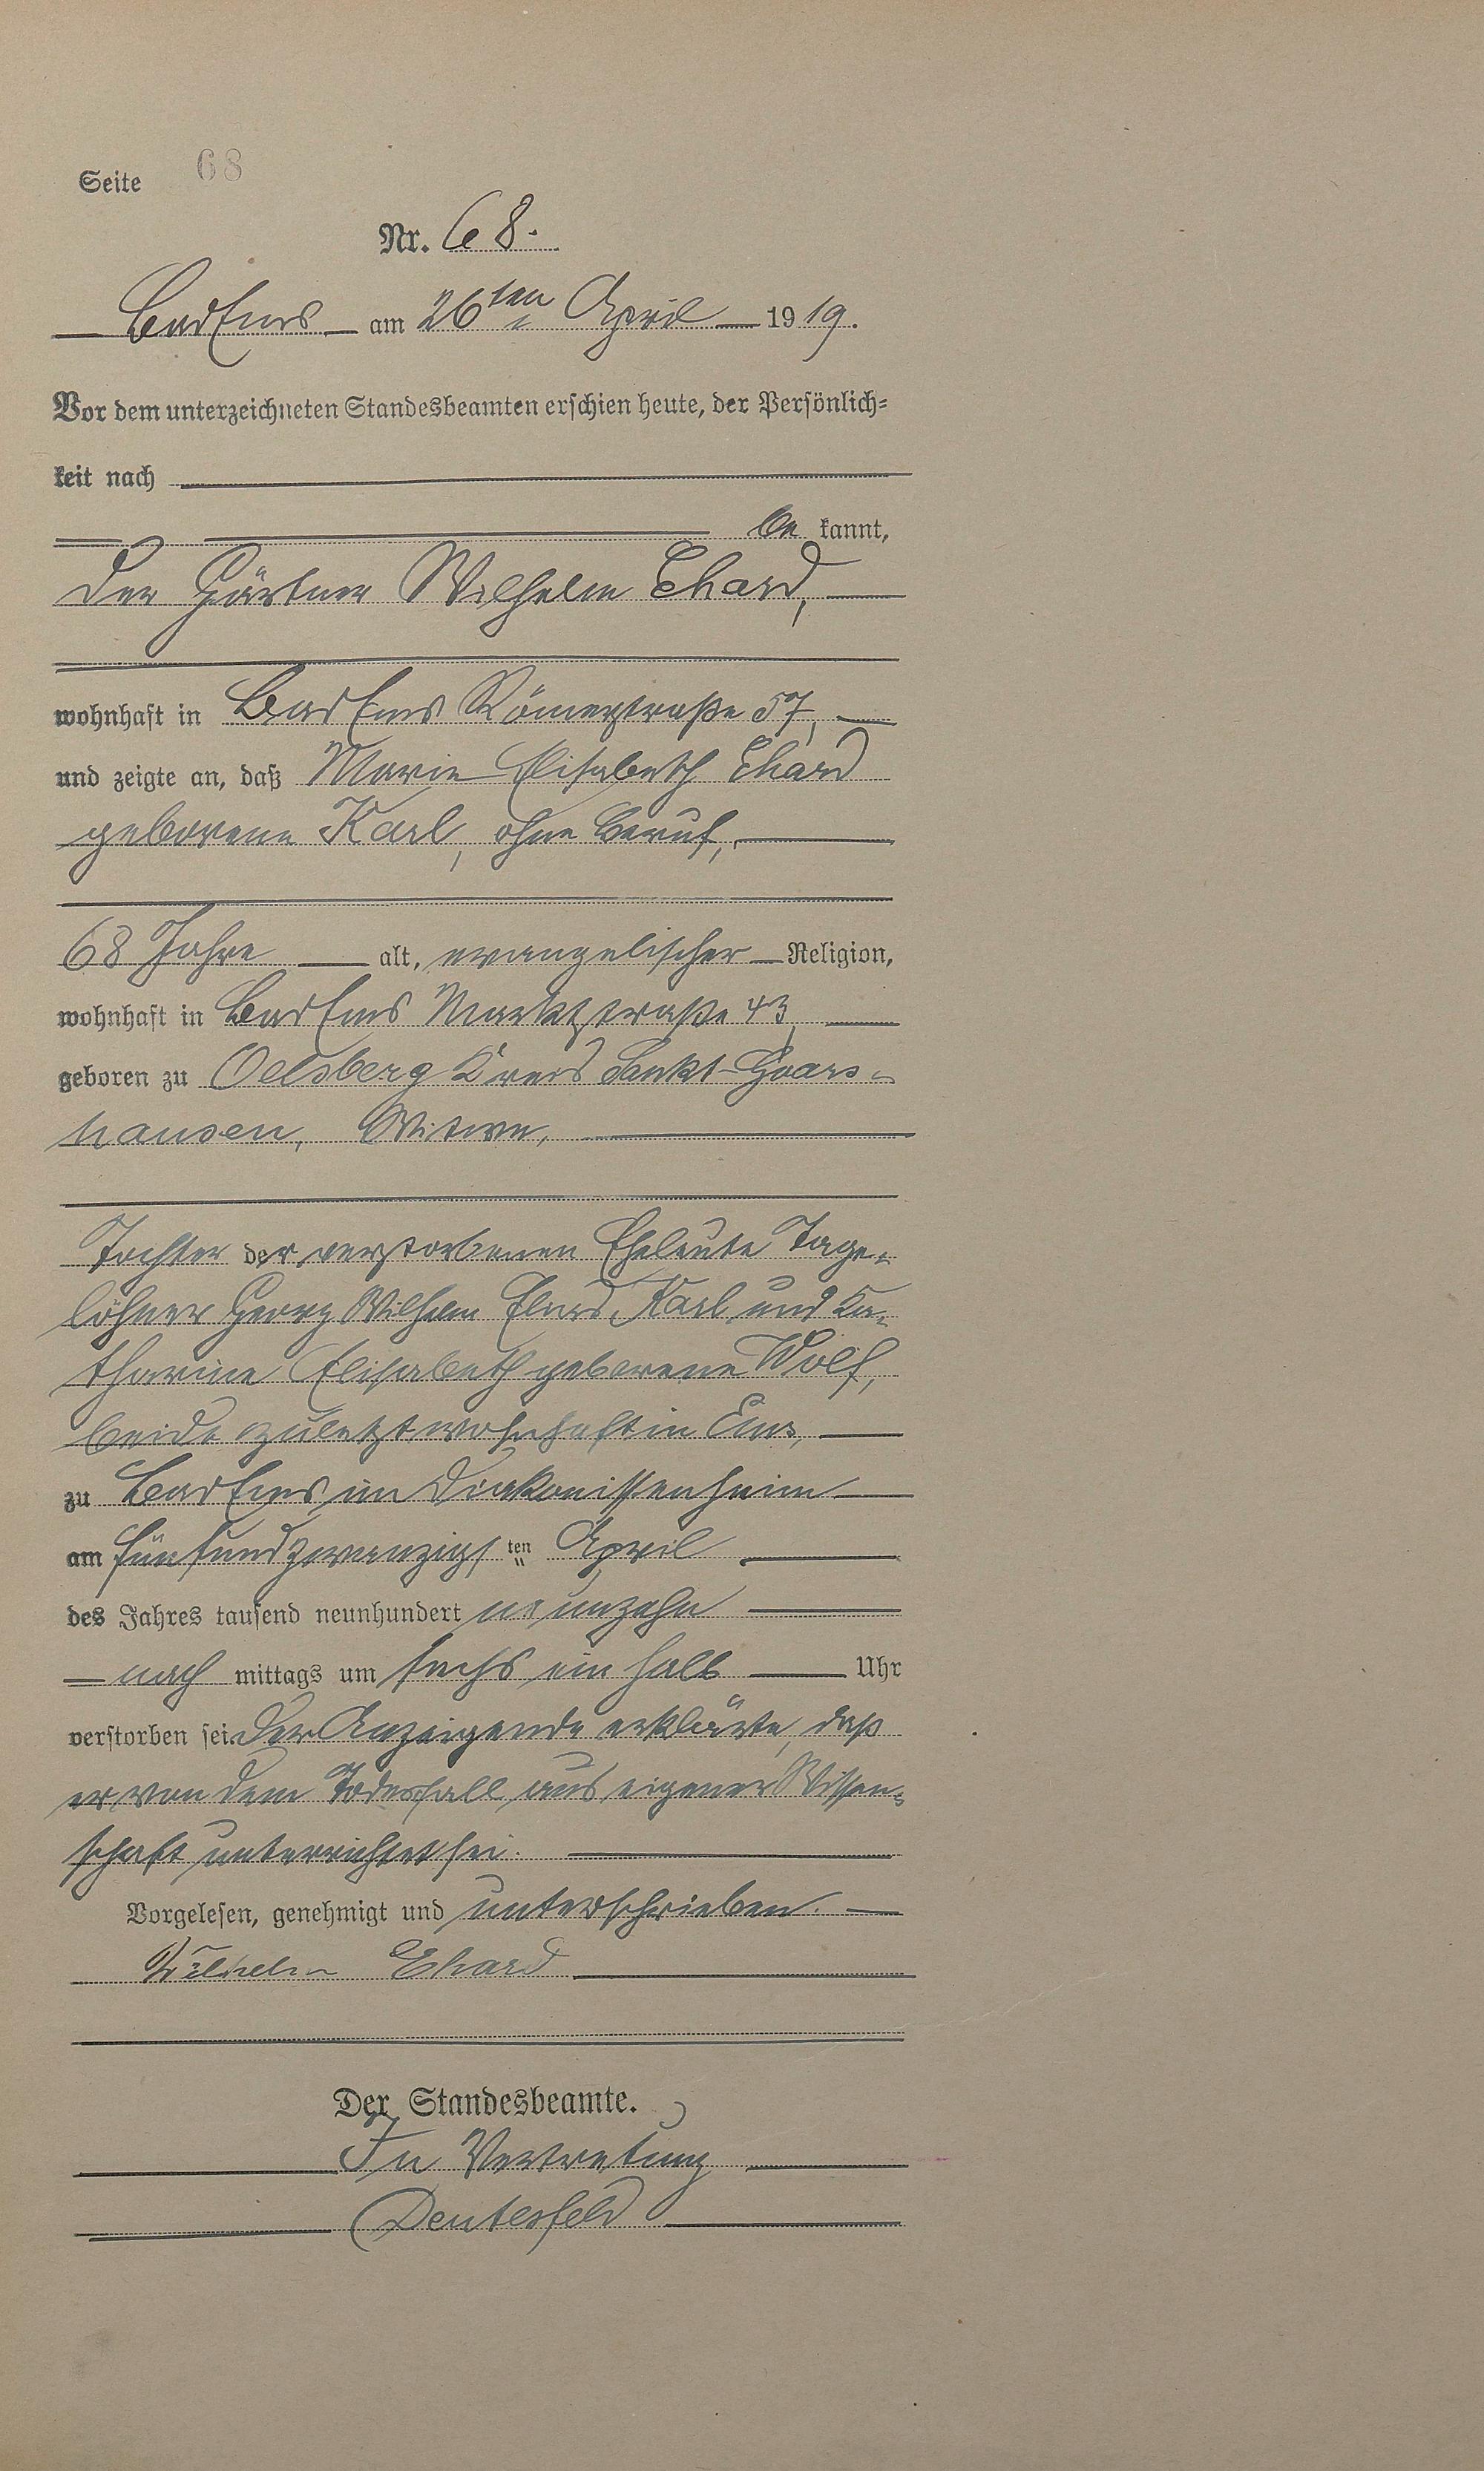 Seite 68
Nr. 68.
Bad Ems am 26ten April 1919.
Vor dem unterzeichneten Standesbeamten erschien heute, der Persönlich=
keit nach
be kannt,
der Gärtner Wilhelm Ehard,
wohnhaft in Bad Ems Römerstraße 57,
und zeigte an, daß Marie Elisabeth Ehard
geborene Karl, ohne Beruf,
68 Jahre alt, evangelischer Religion,
wohnhaft in Bad Ems Marktstraße 43,
geboren zu Oelsberg Kreis Sankt-Goars-
hausen, Witwe,
Tochter der verstorbenen Eheleute Tage-
löhner Georg Wilhelm Karl und Ka-
tharine Elisabeth geborene Wolf,
beide zuletzt wohnhaft in Ems,
zu Bad Ems im Diakonissenheim
am fünfundzwanzigsten April
des Jahres tausend neunhundert neunzehn
nach mittags um sechs ein halb Uhr
verstorben sei. Der Anzeigende erklärte, daß
er von dem Todesfall aus eigener Wissen-
schaft unterrichtet sei.
Vorgelesen, genehmigt und unterschrieben.
Wilhelm Ehard
Der Standesbeamte.
In Vertretung
Deutesfeld